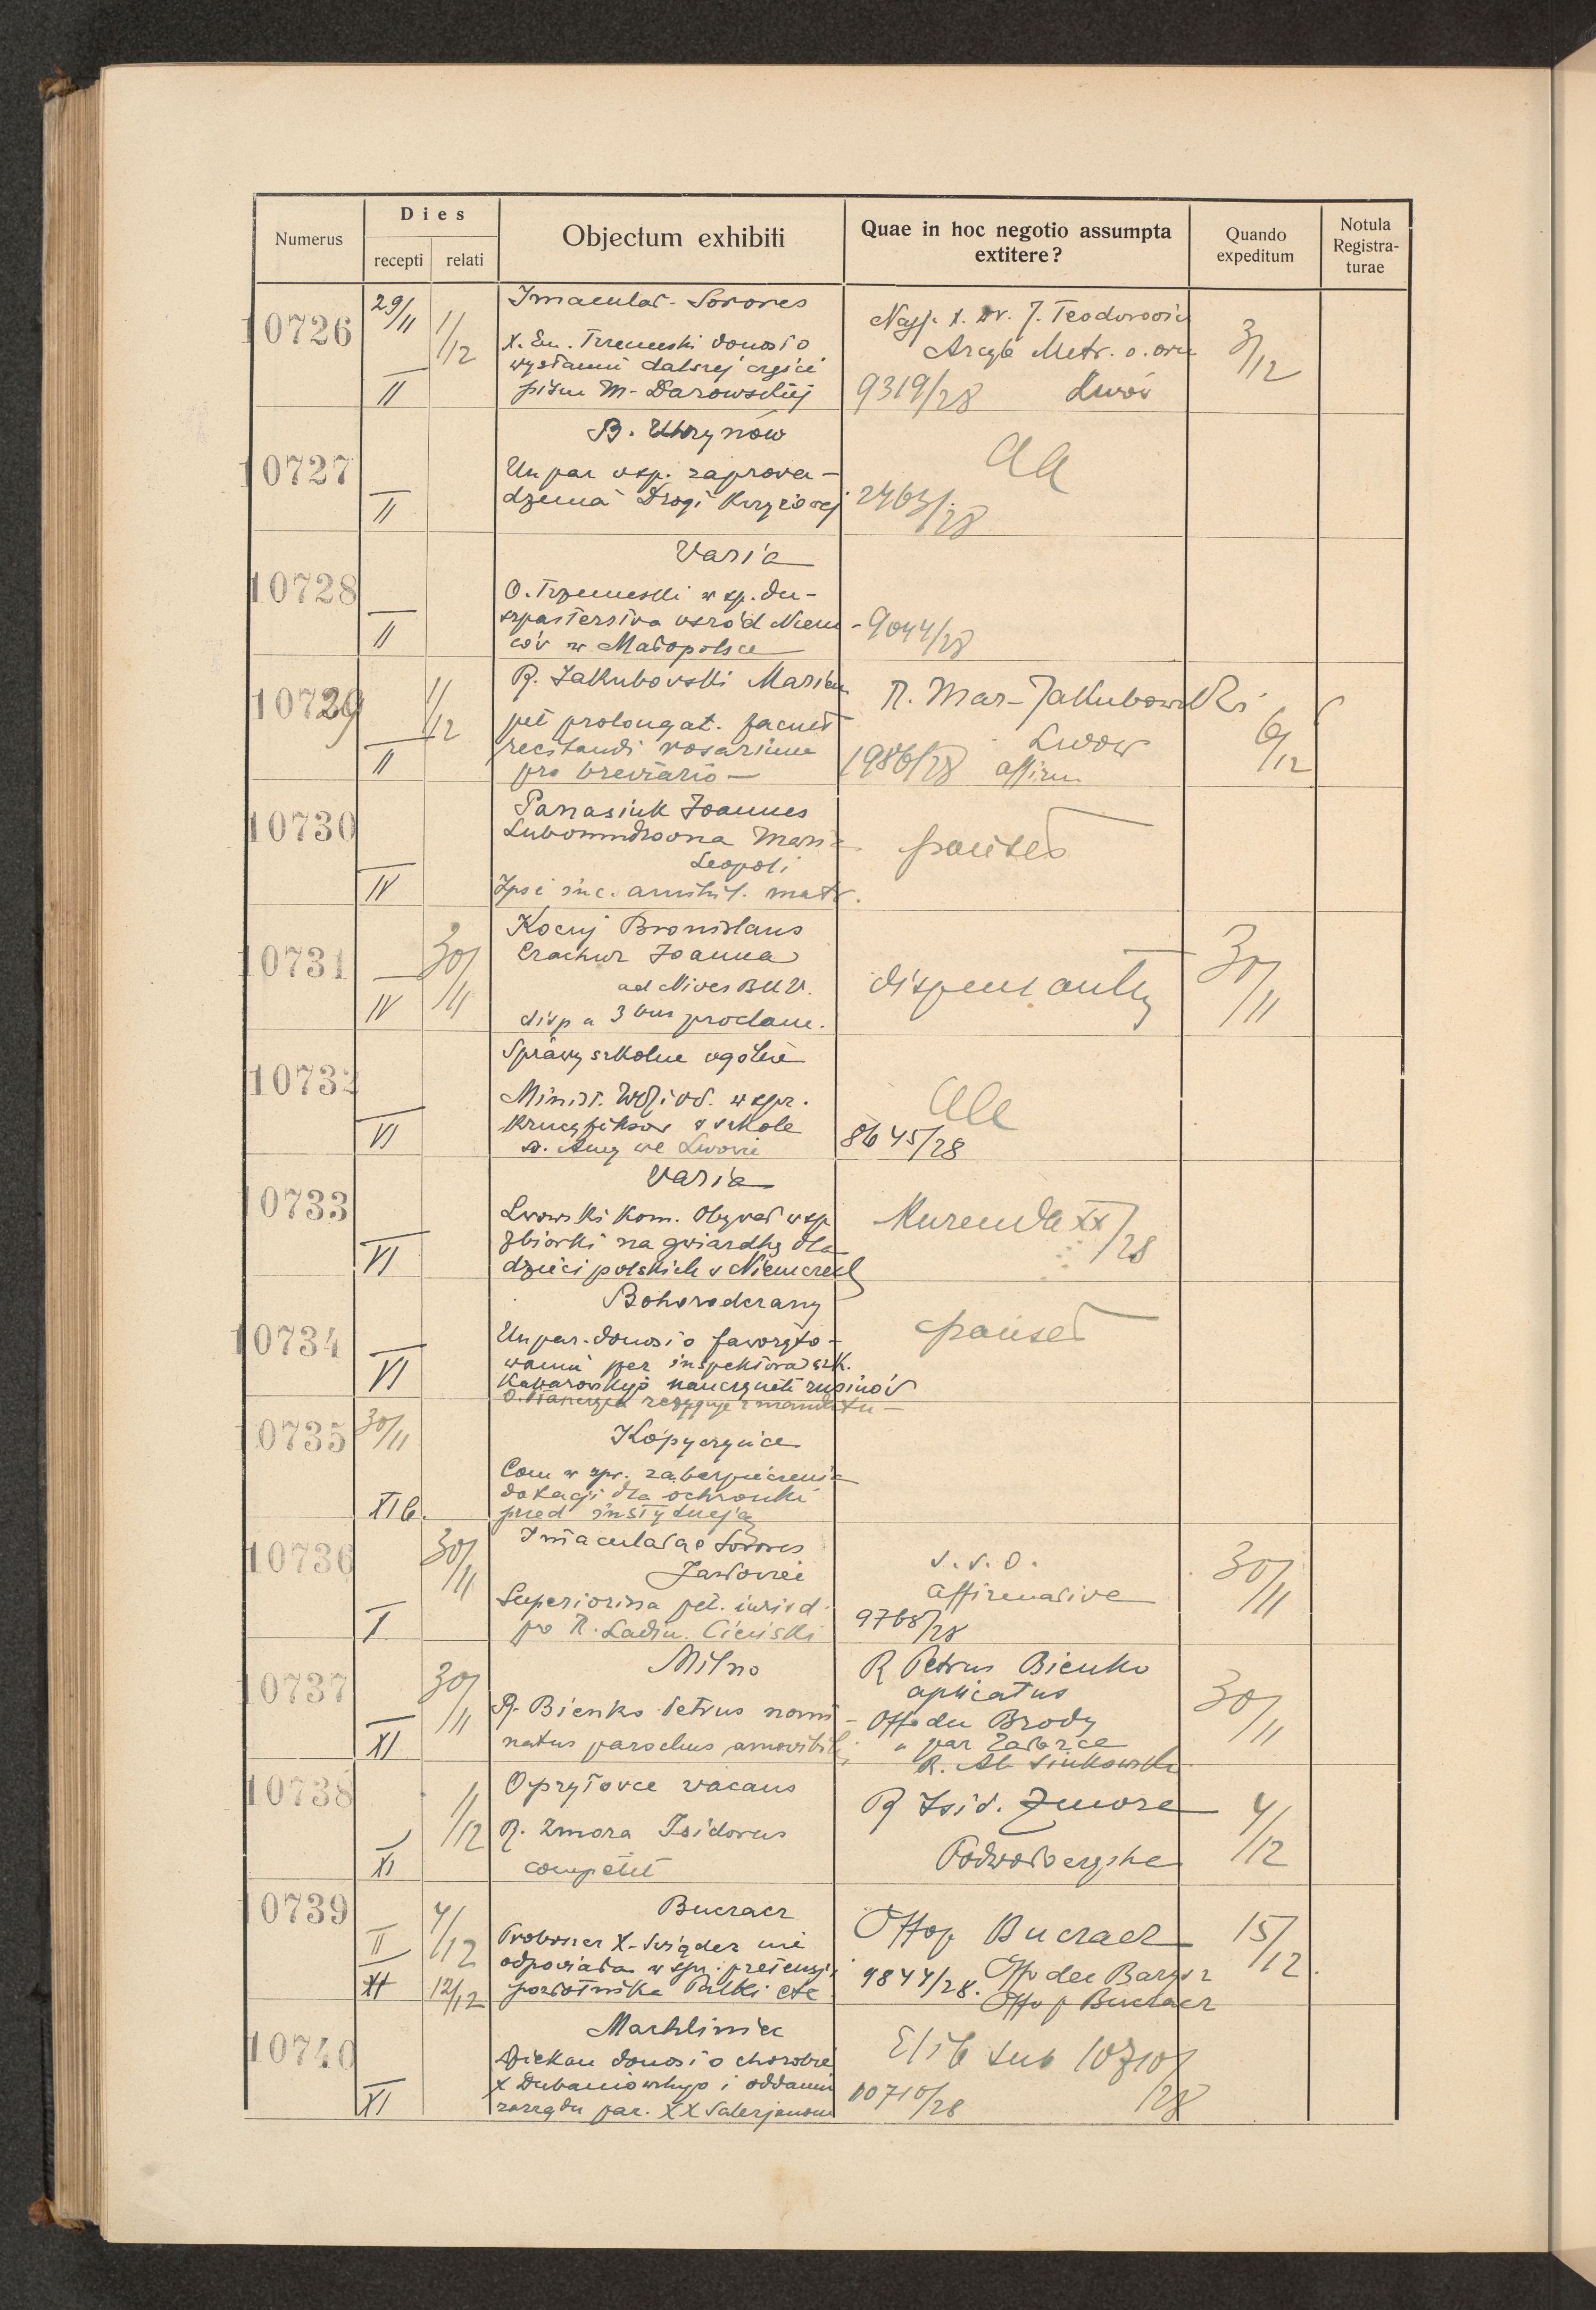 Numerus
Dies
recepti
relati
Objectum exhibiti
Quae in hoc negotio assumpta
extitere?
Quando
expeditum
Notula
Registra-
turae
10726
29/11
1/12
II
Imaculat. Sorores
X. Em. donosi o
wysłaniu dalszej części
pism M. Darowskiej
Najp. X. Dr. J. Teodorowicz
Arcyb Metr. o. orm
9319/28 Lwów
3/12
10727
II
B. Uhrynów
Un par wsp. zaprowa-
dzenia Drogi Krzyżowej
aa
2463/28
10728
II
Varia
O. Trzemeski w sp. du-
szpasterstwa wśród Niem-
ców w Małopolsce
9044/28
10729
1/12
II
R. Jakubowski Marian
pet prolongat. facult
recitandi rosarium
pro breviario
R. Mar. Jakubowski
Lwow
1986/28 affirm
6/12
10730
IV
Panasiuk Joannes
Maria
Leopoli
Ipsi inc. annihil. matr.
pauset
10731
30/11
IV
Kocuj Bronislaus
Joanna
ad Nives BMV.
disp a 3bus proclam.
dispens
30/11
10732
VI
Sprawy szkolne ogólne
Minist. W. w spr.
krucyfiksów w szkole
św. Anny we Lwowie
aa
8645/28
10733
VI
Varia
Lwowski Kom. Obywat w sp
zbiorki na gwiazdkę dla
dzieci polskich w Niemczech
Kurenda XX/28
10734
VI
Bohorodczany
Un par. donosi o faworyzo-
waniu per inspektora szk.
nauczycieli rusinów
O. rezygnuje z mandatu
pauset
10735
30/11
XIb.
Kopyczyńce
Com w spr. zabezpieczenia
dotacji dla ochronki
przed instytucją
10736
30/11
I
Imaculatae Sorores
Jazłowiec
Superiorissa pet. iurisd.
pro R. Ladisl. Cieński
s.v.o.
affirmative
9768/28
30/11
10737
30/11
XI
Milno
R. Bienko Petrus nomi-
natus parochus amovibilis
R Petrus Bienko
aplicatus
Offo dec Brody
" par Załoźce
R. Al. Sinkowski
30/11
10738
1/12
XI
Opryłowce vacans
R. Zmora Isidorus
competit
R Isid. Zmora
Podwołoczyska
4/12
10739
4/12
II
XI
12/12
Buczacz
Proboszcz X. Świąder nie
odpowiada w spr. pretensji
pozłotnika Patki etc
Offop Buczacz
9844/28. Offo dec Barysz
Offo p Buczacz
15/12.
10740
XI
Machliniec
Dziekan donosi o chorobie
X Dubaniowskiego i oddaniu
zarządu par. XX Salezjanom
Elib sub 10710/28
10710/28